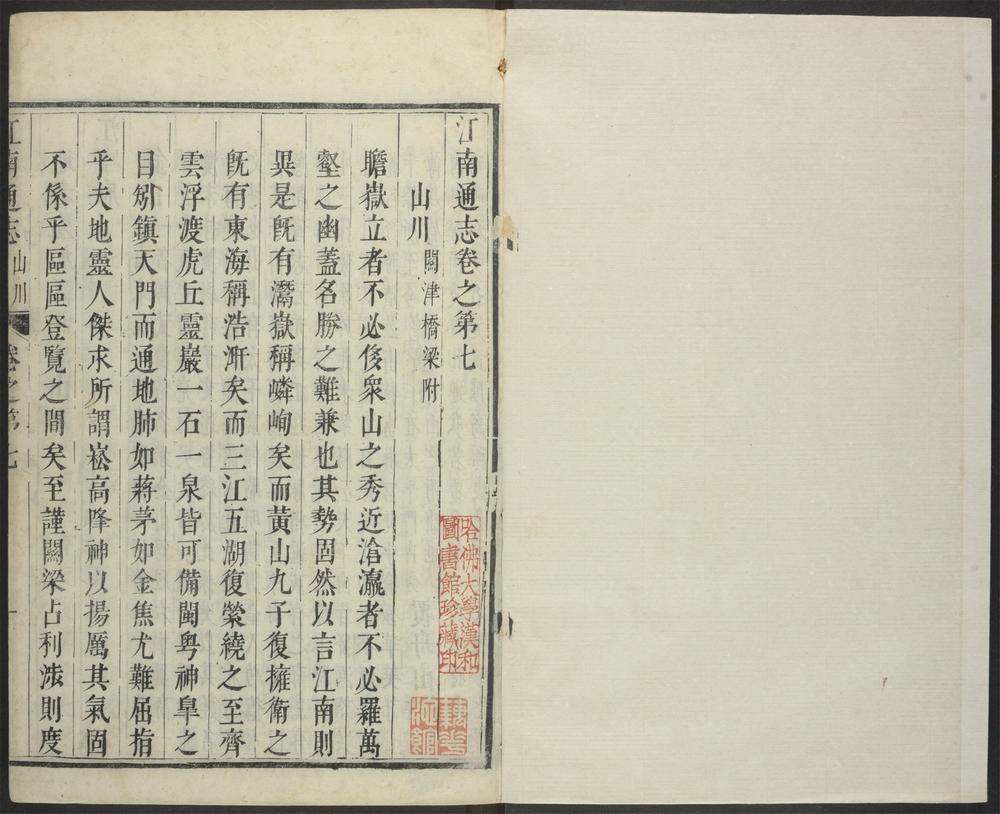 江南通志卷之第七
山川 關津橋梁附
瞻嶽立者不必俟衆山之秀近滄瀛者不必羅萬
壑之幽蓋名勝之難兼也其勢固然以言江南則
異是旣有灊嶽稱嶙峋矣而黃山九子復擁衛之
旣有東海稱浩汧矣而三江五湖復縈繞之至齊
雲浮渡虎丘靈巖一石一泉皆可備閬粤神臯之
目矧鎭天門而通地肺如蔣茅如金焦尤難屈指
乎夫地靈人傑求所謂崧高降神以揚厲其氣固
不係乎區區登覽之間矣至謹關梁占利涉則度
江南通志 山川 卷之第七 一
哈佛大學漢和
圖書館珍藏印